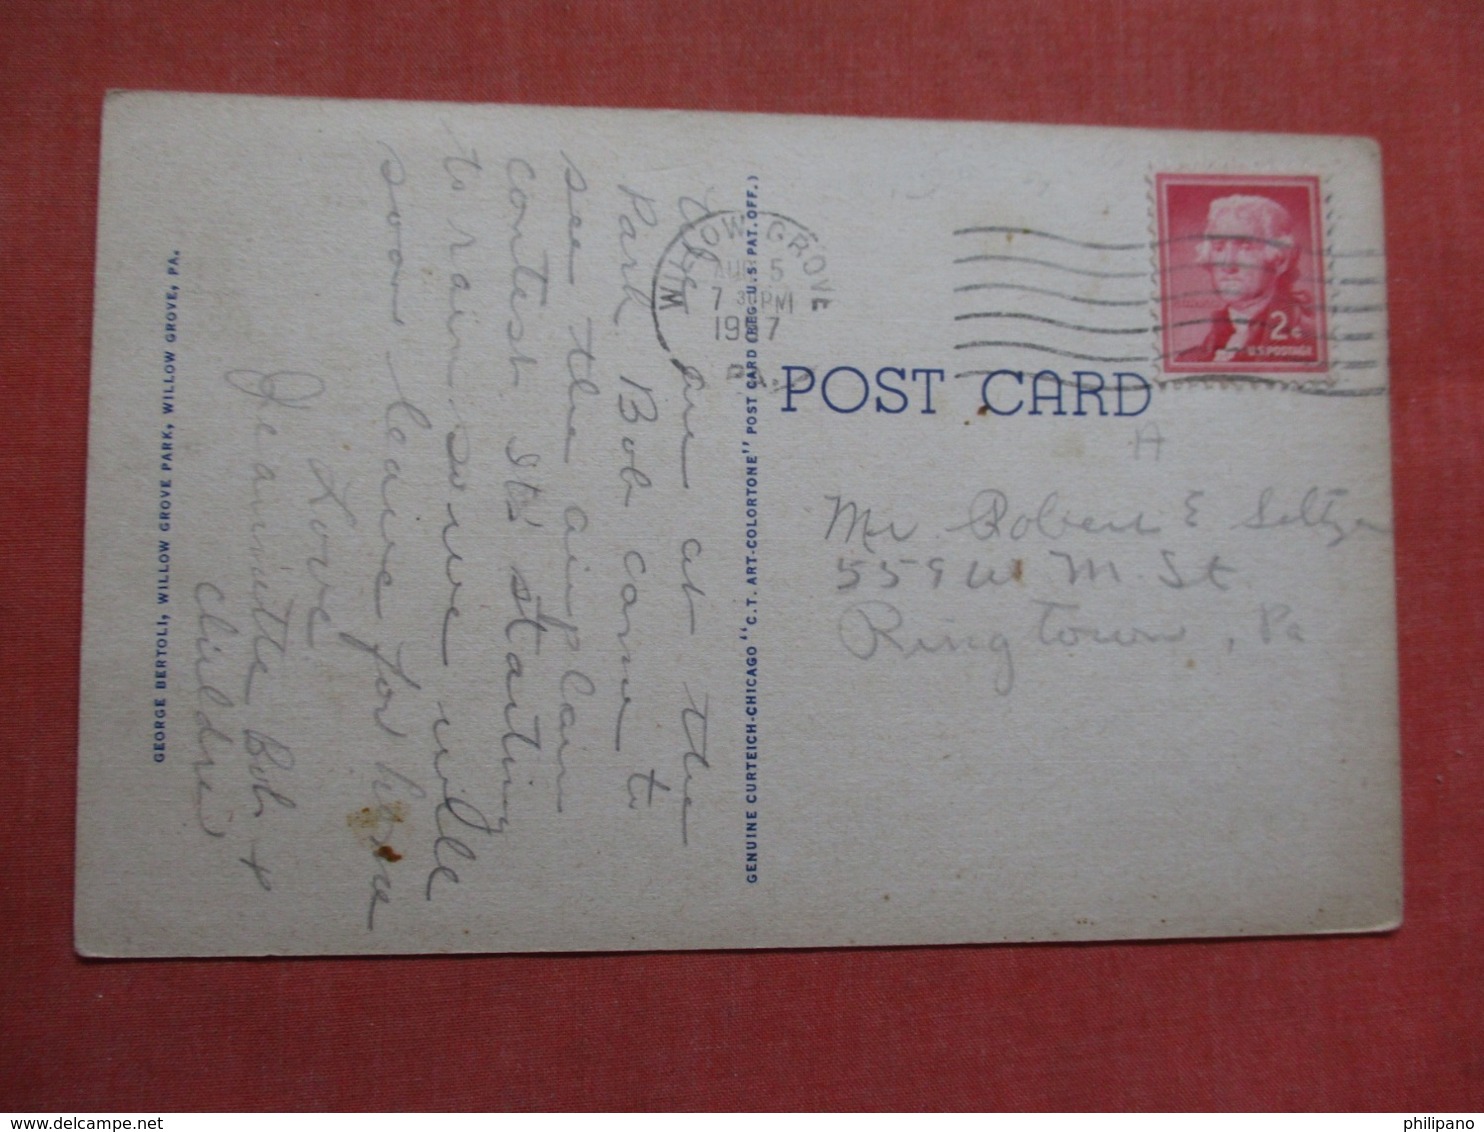 We are at the
Park. Bob came to
see the airplane
contest. It's starting
to rain so we will
soon leave for home
Love
Jeannette Bob +
children
GEORGE BERTOLI, WILLOW GROVE PARK, WILLOW GROVE, PA.
GENUINE CURTEICH-CHICAGO "C.T. ART-COLORTONE" POST CARD (REG. U.S. PAT. OFF.)
WILLOW GROVE
AUG 5
7 30 PM
1957
PA.
2¢
U.S. POSTAGE
POST CARD
A
Mr Robert E Seltzer
559 W M. St
Ringtown, Pa
philipano
delcampe.net